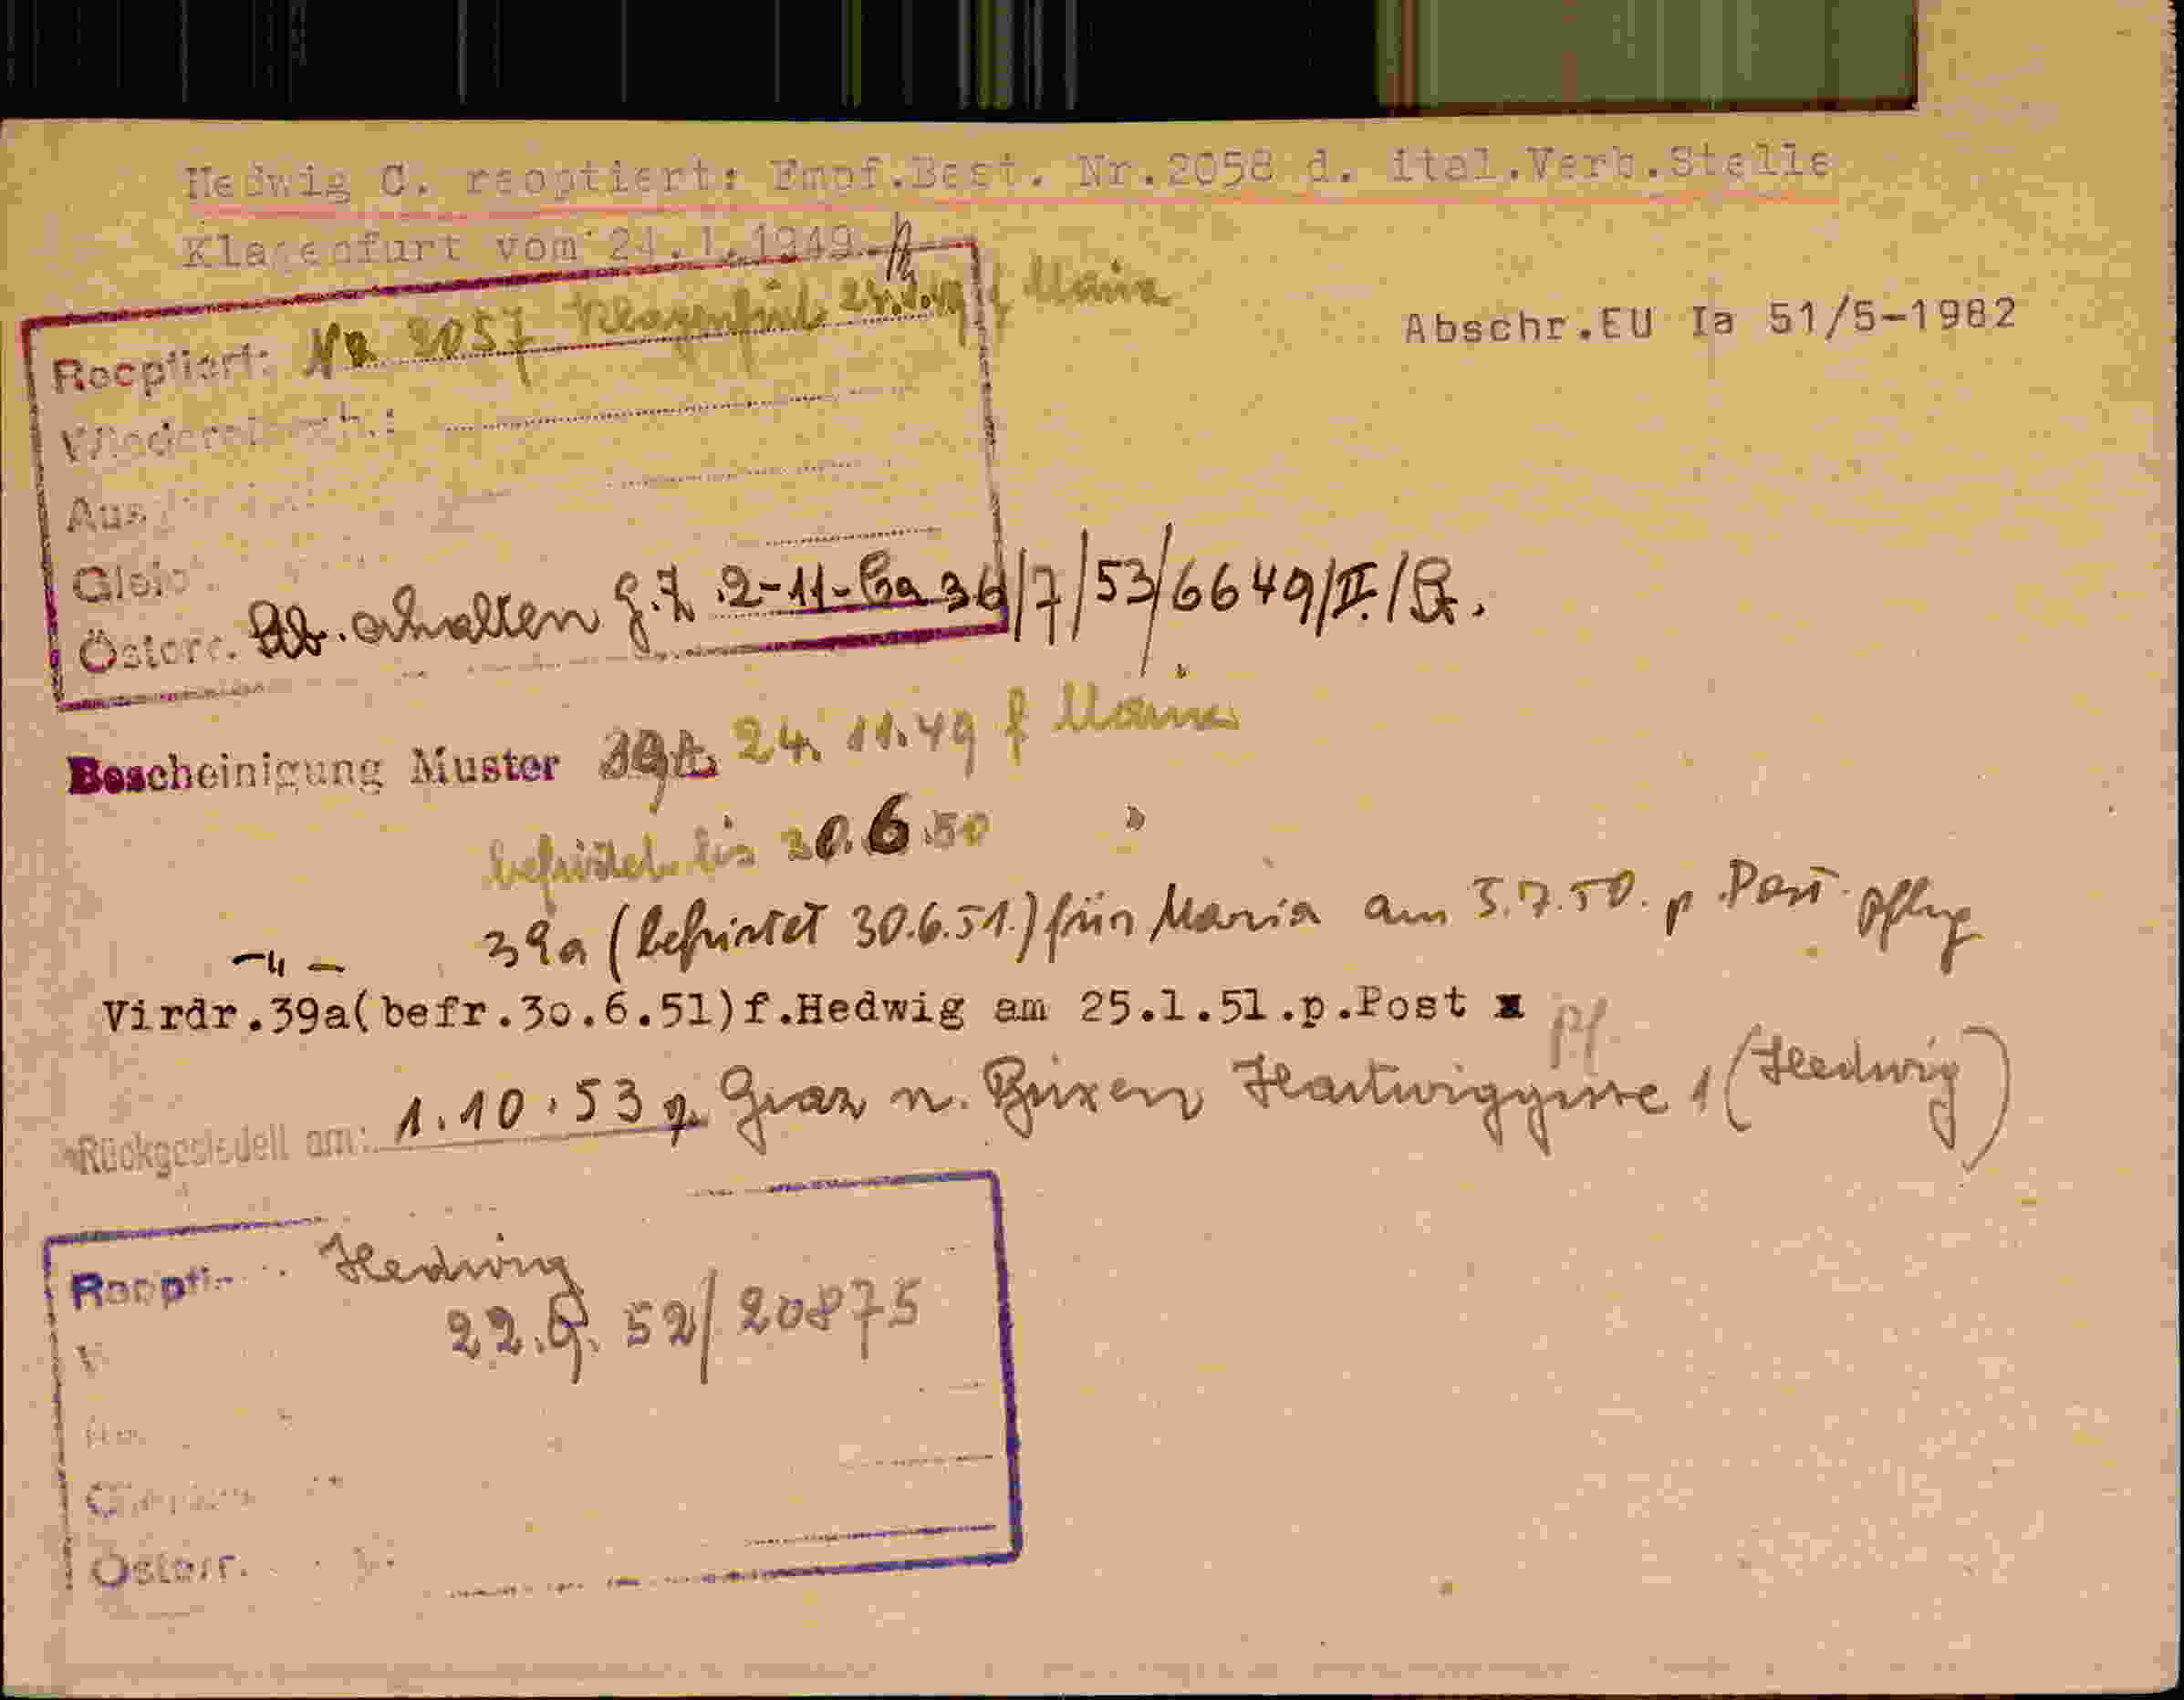 Hedwig C. reoptiert: Empf.Best. Nr.2058 d. ital.Verb.Stelle
Klagenfurt vom 24.1.1949
Reoptiert: Nr 2057 Klagenfurt 24.1.49 f Maria
Abschr.EU Ia 51/5-1982
Aus
Gleic
Österr. erhalten g.Z 2-11-Ca 36/7/53/6649/II./
Bescheinigung Muster 39a 24.11.49 f Maria
befristet bis 30.6.50 "
-"- 39a (befristet 30.6.51.) für Maria am 5.7.50. p Post
Virdr.39a(befr.30.6.51)f.Hedwig am 25.1.51.p.Post x
Rückgesiedelt am: 1.10.53 Graz n. Brixen Hartwiggasse 1 (Hedwig)
Reopti Hedwig
22.9.52/20875
Österr.